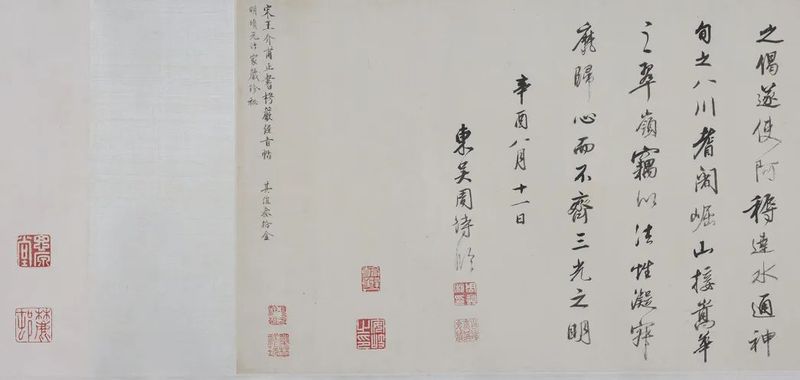 之偈遂使阿耨達水通神
旬之八川耆闍崛山接嵩華
之翠嶺竊以法性凝寂
靡歸心而不齊三光之明
辛酉八月十一日
東吳周詩
宋王介甫正書楞嚴經旨帖 其值叁拾金
明項元汴家藏珍秘